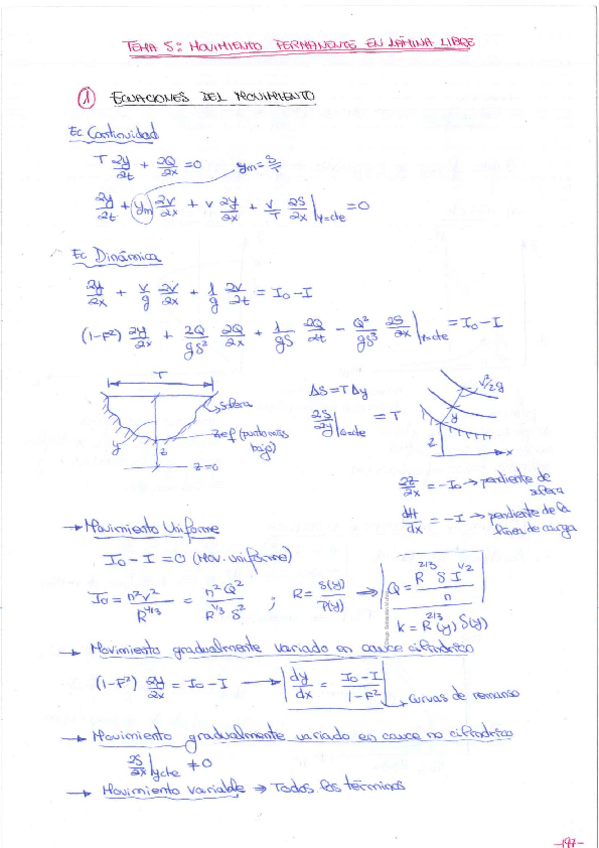 TEMA 5: MOVIMIENTO PERMANENTE EN LÁMINA LIBRE
① ECUACIONES DEL MOVIMIENTO
Ec Continuidad
T ∂y/∂t + ∂Q/∂x = 0    ym = S/T
∂y/∂t + ym ∂v/∂x + v ∂y/∂x + v/T ∂S/∂x |y=cte = 0
Ec Dinámica
∂y/∂x + v/g ∂v/∂x + 1/g ∂v/∂t = I₀ - I
(1-F²) ∂y/∂x + 2Q/gS² ∂Q/∂x + 1/gS ∂Q/∂t - Q²/gS³ ∂S/∂x | = I₀ - I
T
y
z
z=0
ref (punto más bajo)
ΔS = TΔy
∂S/∂y | = T
v²/2g
y
z
x
∂z/∂x = -I₀ → pendiente de solera
dH/dx = -I → pendiente de la línea de carga
→ Movimiento Uniforme
I₀ - I = 0 (Mov. uniforme)
I₀ = n²v²/R^4/3 = n²Q²/R^4/3 S² ; R = S(y)/P(y) → Q = R^2/3 S I^1/2 / n
k = R^2/3(y) S(y)
→ Movimiento gradualmente variado en cauce cilíndrico
(1-F²) ∂y/∂x = I₀ - I → dy/dx = I₀-I / 1-F²
curvas de remanso
→ Movimiento gradualmente variado en cauce no cilíndrico
∂S/∂x |ycte ≠ 0
→ Movimiento variable → Todos los términos
-197-